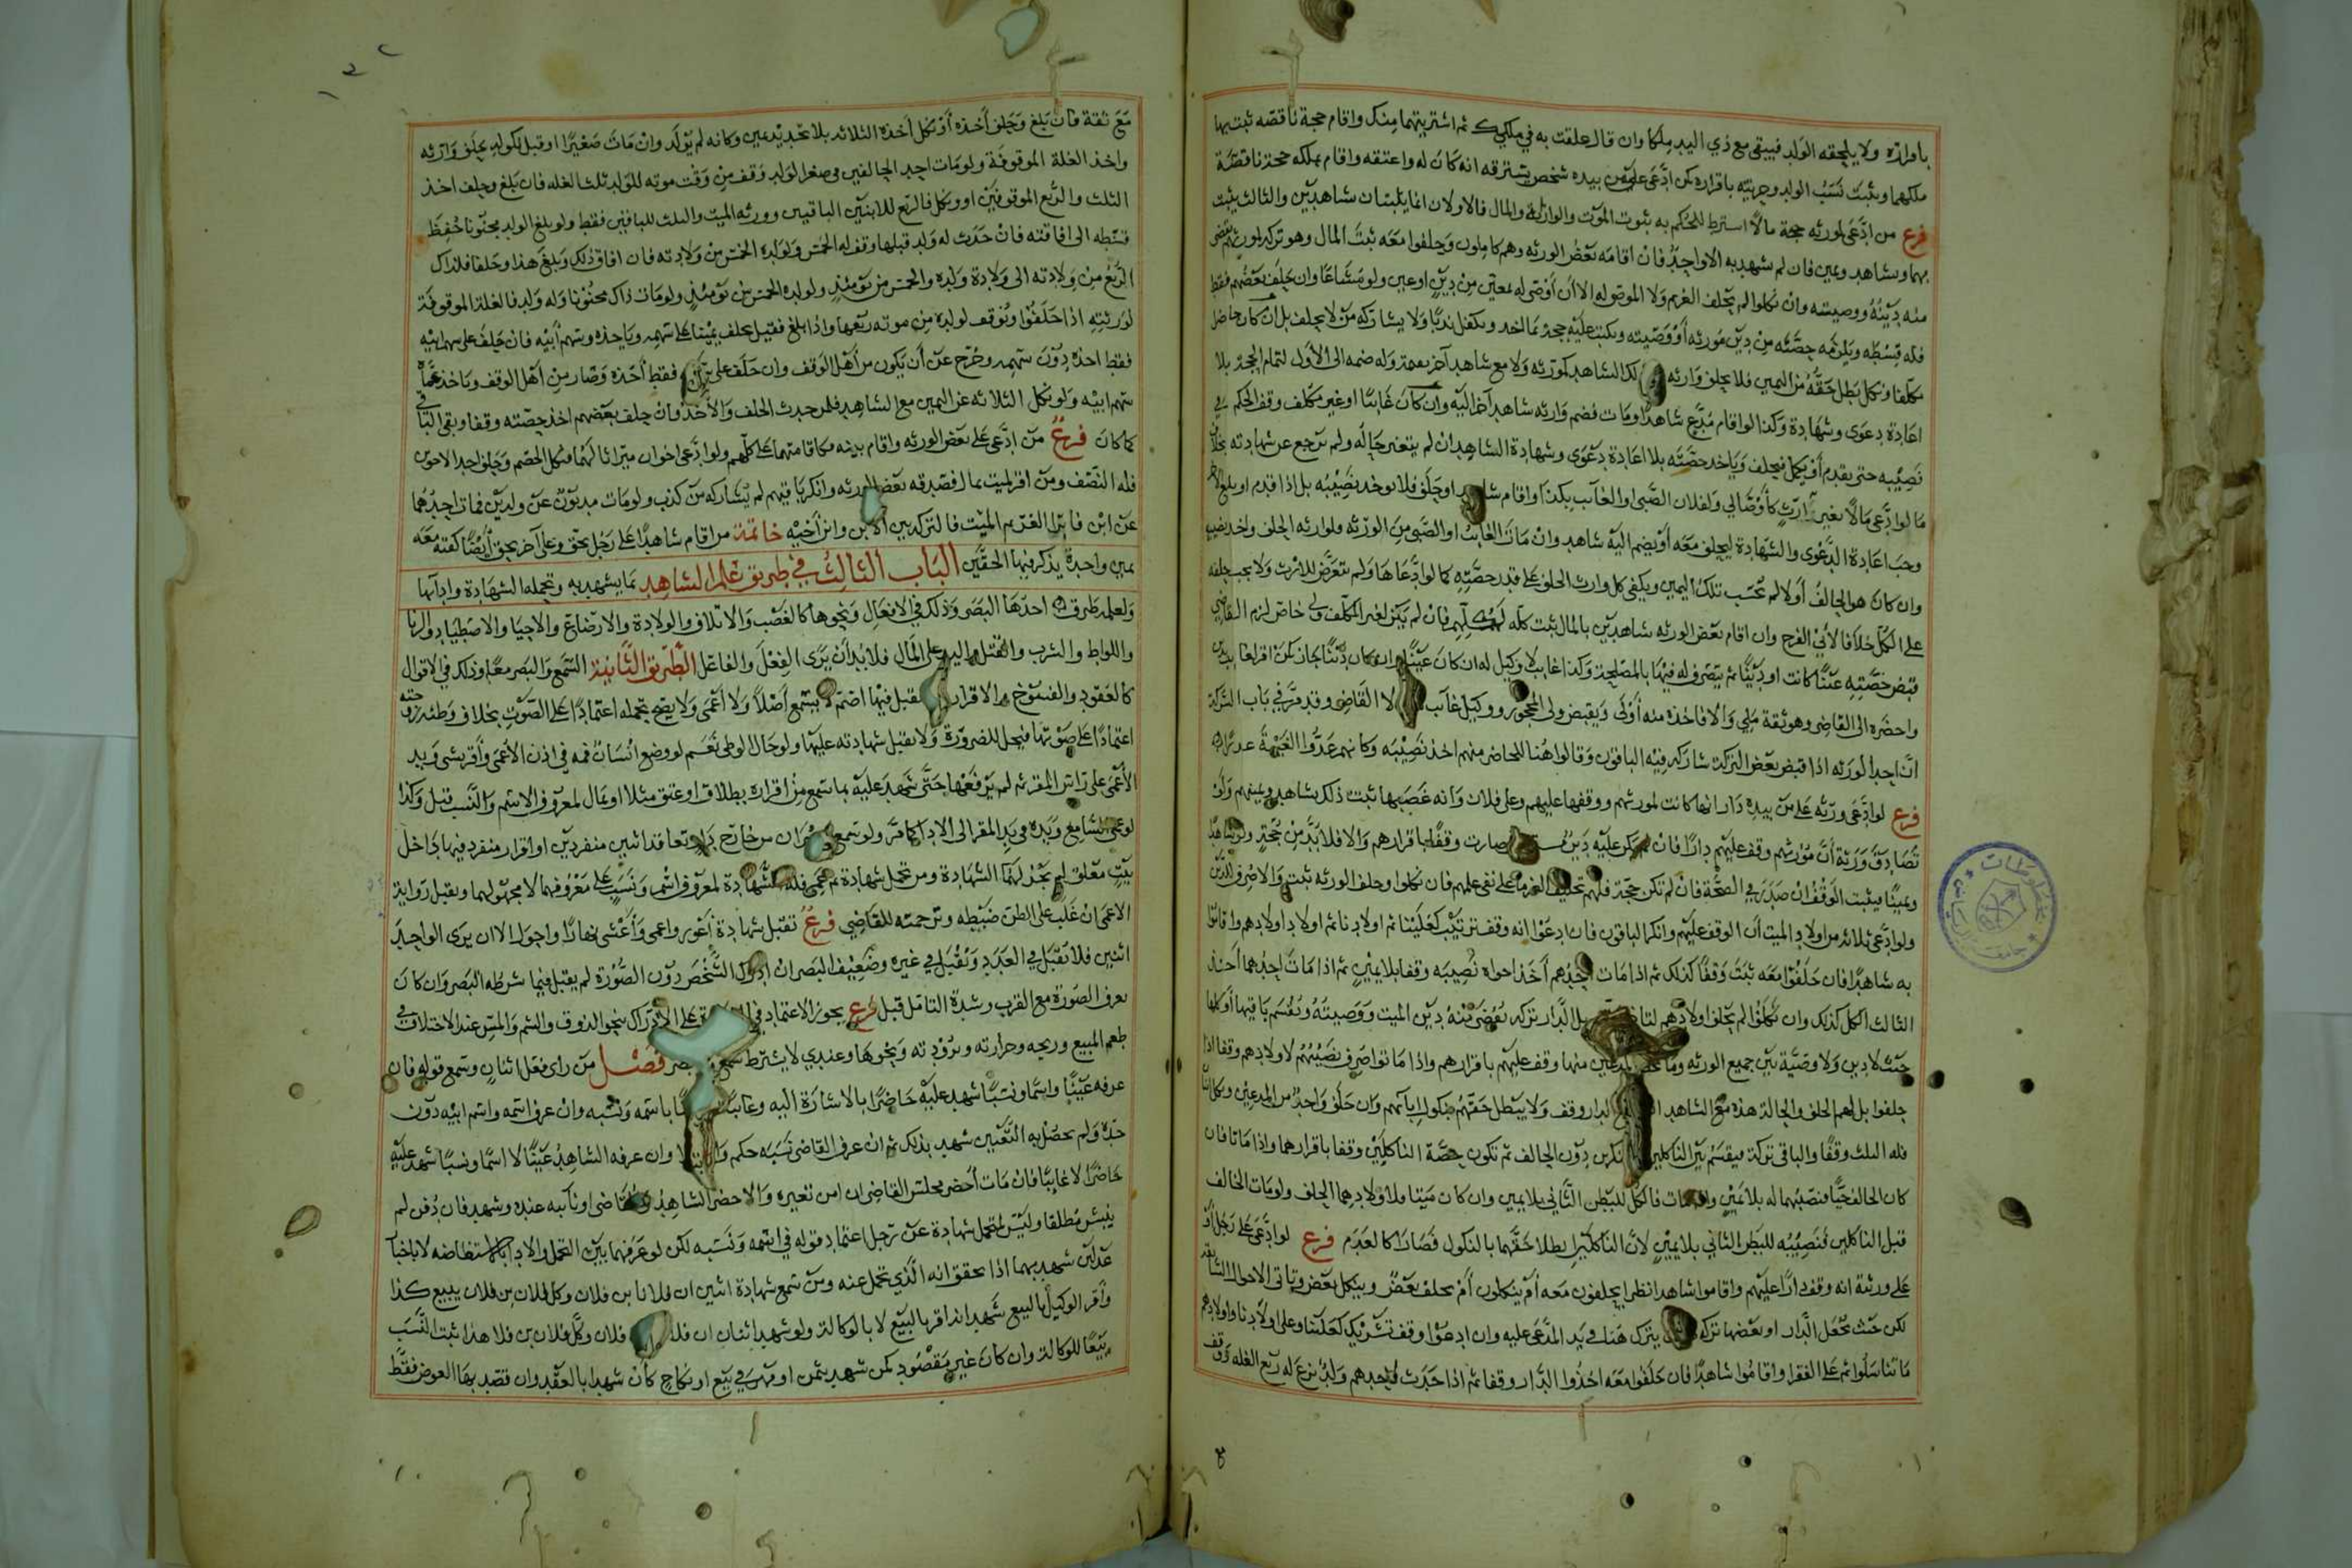 باقراره ولا يلحقه الولد فيبقى مع ذي اليد ملكا وان قال علقت به في ملكك ثم اشتريتهما منك واقام حجة ناقصة ثبت بها
ملكهما ويثبت نسب الولد وحريته باقراره كمن ادعى على من بيده شخص يسترقه انه كان له واعتقه واقام بملكه حجة ناقصة
فرع من ادعى لمورثه بحجة مالا اشترط للحكم به ثبوت الموت والوراثة والمال فالاولان انما يثبتان بشاهدين والثالث يثبت
بهما وبشاهد ويمين فان لم يشهد به الا واحد فان اقامه بعض الورثه وهم كاملون وحلفوا معه ثبت المال وهو تركه لمورثهم
منه دينه ووصيته وان نكلوا لم يحلف الغريم ولا الموصى له الا ان اوصى له بمعين من دين او عين ولو مشاعا وان حلف بعضهم فقط
فله قسطه ويلزمه حصته من دين مورثه او وصيته
مكلفا ونكل بطل حقه من اليمين فلا يحلف وارثه لكن الشاهد كمورثه ولا مع شاهد آخر يقيمه وله ضمه الى الاول لتمام الحجة بلا
اعادة دعوى وشهادة وكذا لو اقام مدع شاهدا ومات فضم وارثه شاهدا آخر اليه وان كان غائبا او غير مكلف وقف الحكم في
نصيبه حتى يقدم او يكمل فيحلف وياخذ حصته بلا اعادة دعوى وشهادة الشاهد ان لم يتغير حاله ولم يرجع عن شهادته بخلاف
ما لو ادعى مالا بغير ارث كاوصى لي ولفلان الصبي او الغائب بكذا واقام شاهدا وحلف فلا يوخذ نصيبه بل اذا قدم او بلغ
وجب اعادة الدعوى والشهادة ليحلف معه او يضم اليه شاهد وان مات الغائب او الصبي من الورثه فلوارثه الحلف واخذ نصيبه
وان كان هو الحالف اولا لم تحسب تلك اليمين ويكفي كل وارث الحلف على قدر حصته كما لو ادعاها ولم يتعرض للارث ولا يجب حلفه
على الكل خلافا لابي الفرج وان اقام بعض الورثه شاهدين بالمال ثبت كله فان لم يكن لغير المكلف ولي خاص لزم القاضي
قبض حصته عينا كانت او دينا ثم يتصرف له فيها بالمصلحة وكذا غائب لا وكيل له ان كان عينا وان كان دينا جاز لكن
واحضره الى القاضي وهو ثقة ملي والا فاخذه منه اولى ويقبض ولي المحجور ووكيل غائب لا القاضي وقد مر في باب الشركة
ان احد الورثه اذا قبض بعض التركة شاركه فيه الباقون وقالوا هنا للحاضر منهم اخذ نصيبه وكانهم عدوا الغيبة عذرا
فرع لو ادعى ورثه على من بيده دار انها كانت لمورثهم ووقفها عليهم وعلى فلان وانه غصبها ثبت ذلك بشاهد ويمينهم ولو
تصادق ورثة ان مورثهم وقف عليهم دارا فان لم يكن عليه دين صارت وقفا باقرارهم والا فلا بد من حجة ولو شاهدا
ويمينا فيثبت الوقف ان صدر في الصحة فان لم تكن حجة فلهم تحليف الغرما على نفي علمهم فان نكلوا وحلف الورثه ثبت والا صرف للدين
ولو ادعى ثلاثه من اولاد الميت ان الوقف عليهم وانكر الباقون فان ادعوا انه وقف ترتيب كعلينا ثم اولادنا ثم اولاد اولادهم واقاموا
به شاهدا فان حلفوا معه ثبت وقفا كذلك ثم اذا مات احدهم اخذ اخواه نصيبه وقفا بلا يمين ثم اذا مات احدهما اخذ
الثالث الكل كذلك وان نكلوا لم يحلف اولادهم بل الدار تركه يقضى منه دين الميت ووصيته ويقسم باقيها او كلها
حيث لا دين ولا وصية بين جميع الورثه وما المدعين منها وقف عليهم باقرارهم واذا ماتوا صرف نصيبهم لاولادهم وقفا اذا
حلفوا بل لهم الحلف والحالة هذه مع الشاهد الدار وقف ولا يبطل حقهم بنكول ابائهم وان حلف واحد من المدعين ونكل
فله الثلث وقفا والباقي تركة فيقسم بين الناكلين دون الحالف ثم تكون حصة الناكلين وقفا باقرارهما واذا ماتا فان
كان الحالف حيا فنصيبهما له بلا يمين فالكل للبطن الثاني بلا يمين وان كان ميتا فلاولادهما الحلف ولو مات الحالف
قبل الناكلين فنصيبه للبطن الثاني بلا يمين لان الناكلين ابطلا حقهما بالنكول فصارا كالعدم فرع لو ادعى على رجل او
على ورثة انه وقف دارا عليهم واقاموا شاهدا نظر ايحلفون معه ام ينكلون ام يحلف بعض وينكل بعض وتاتي الاحوال
لكن حيث تجعل الدار او بعضها تركه يترك هنا في يد المدعى عليه وان ادعوا وقف تشريك كعلينا وعلى اولادنا واولادهم
ما تناسلوا ثم على الفقرا واقاموا شاهدا فان حلفوا معه اخذوا الدار وقفا ثم اذا حدث لاحدهم ولد نزع له ربع الغله وقف
مع ثقة فان بلغ وحلف اخذه او نكل اخذه الثلاثه بلا تجديد يمين وكانه لم يولد وان مات صغيرا او قبل نكوله يحلف وارثه
واخذ الغلة الموقوفة ولو مات احد الحالفين في صغر الولد وقف من وقت موته للولد ثلث الغله فان بلغ وحلف اخذ
الثلث والربع الموقوفين او ونكل فالربع للابنين الباقيين وورثه الميت والثلث للباقين فقط ولو بلغ الولد مجنونا حفظ
قسطه الى افاقته فان حدث له ولد قبلها وقف له الخمس ولولده الخمس من ولادته فان افاق ذلك وبلغ هذا وحلفا فلذاك
الربع من ولادته الى ولادة ولده والخمس من يومئذ ولولده الخمس من يومئذ ولو مات ذاك مجنونا وله ولد فالغلة الموقوفة
لورثته اذا حلفوا ويوقف لولده من موته ربعها واذا بلغ فقيل يحلف يمينا على سهمه وياخذه وسهم ابيه فان حلف على سهم ابيه
فقط اخذه دون سهمه وخرج عن ان يكون من اهل الوقف وان حلف على فقط اخذه وصار من اهل الوقف وياخذ
سهم ابيه ولو نكل الثلاثه عن اليمين مع الشاهد فلمن حدث الحلف والاخذ فان حلف بعضهم اخذ حصته وقفا وبقي الباقي
كما كان فرع من ادعى على بعض الورثه واقام بينه فكاقامتها على كلهم ولو ادعى اخوان ميراثا لهما فنكل الخصم وحلف احد الاخوين
فله النصف ومن اقر لميت بمال فصدقه بعض الورثه وانكر باقيهم لم يشاركه من كذب ولو مات مديون عن ولدين فمات احدهما
عن ابن فابرا الغريم الميت فالتركه بين الابن وابن اخيه خاتمة من اقام شاهدا على رجل بحق وعلى آخر بحق ايضا كفته معه
يمين واحدة يذكر فيها الحقين الباب الثالث في طريق علم الشاهد بما يشهد به وتحمله الشهادة وادائها
ولعلمه طرق احدها البصر وذلك في الافعال ونحوها كالغصب والاتلاف والولادة والارضاع والاحيا والاصطياد والزنا
واللواط والشرب والقتل واليد على المال فلا بد ان يرى الفعل والفاعل الطريق الثانية السمع والبصر معا وذلك في الاقوال
كالعقود والفسوخ والاقرار يقبل فيها اصم لا يسمع اصلا ولا اعمى ولا يصح تحمله اعتمادا على الصوت بخلاف وطئه زوجته
اعتمادا على صوتها فيحل للضرورة ولا يقبل شهادته عليها ولو حال الوطئ نعم لو وضع انسان فمه في اذن الاعمى واقر بشي ويد
الاعمى على راس المقر ثم لم يرفعها حتى شهد عليه بما سمع من اقراره بطلاق او عتق مثلا او بمال لمعروف الاسم والنسب قبل وكذا
لو عمي السامع ويده في يد المقر الى الادا كما مر ولو سمع من خارج تعاقد اثنين منفردين او اقرار منفرد فيها داخل
بيت مغلق لم يجز لهما الشهادة ومن تحمل شهادة ثم عمي فله الشهادة لمعروف اسم ونسب على معروفهما لا مجهولهما ويقبل رواية
الاعمى ان غلب على الظن ضبطه وترجمته للقاضي فرع تقبل شهادة اعور واعمى واعشى نهارا واحول الا ان يرى الواحد
اثنين فلا تقبل في العدد وتقبل في غيره وضعيف البصر ان ادرك الشخص دون الصورة لم يقبل فيما شرطه البصر وان كان
يعرف الصورة مع القرب وشدة التامل قبل فرع يجوز الاعتماد في على الادراك بنحو الذوق والشم واللمس عند الاختلاف في
طعم المبيع وريحه وحرارته وبرودته ونحوها وعندي لا يشترط سمع بصر فصل من راى فعل انسان وسمع قوله فان
عرفه عينا واسما ونسبا شهد عليه حاضرا بالاشارة اليه وغائبا باسمه ونسبه وان عرف اسمه واسم ابيه دون
جده ولم يحصل به التعيين شهد بذلك ثم ان عرف القاضي نسبه حكم وان عرفه الشاهد عينا لا اسما ونسبا شهد عليه
حاضرا لا غائبا فان مات احضر مجلس القاضي ان امن تغيره والا حضر الشاهد والقاضي او نائبه عنده وشهد فان دفن لم
ينبش مطلقا وليس لمتحمل شهادة عن رجل اعتماد قوله في اسمه ونسبه لكن لو عرفهما بين التحمل والادا باستفاضه لا باخبار
عدلين شهد بهما اذا تحقق انه الذي تحمل عنه ومن سمع شهادة اثنين ان فلانا بن فلان وكل فلان بن فلان ببيع كذا
واقر الوكيل بالبيع شهد انه اقر بالبيع لا بالوكالة ولو شهد اثنان ان فلان فلان وكل فلان بن فلان هذا ثبت النسب
تبعا للوكالة وان كان غير مقصود كمن شهد بثمن او مهر في بيع او نكاح كان شهد بالعقد وان قصد بها العوض فقط